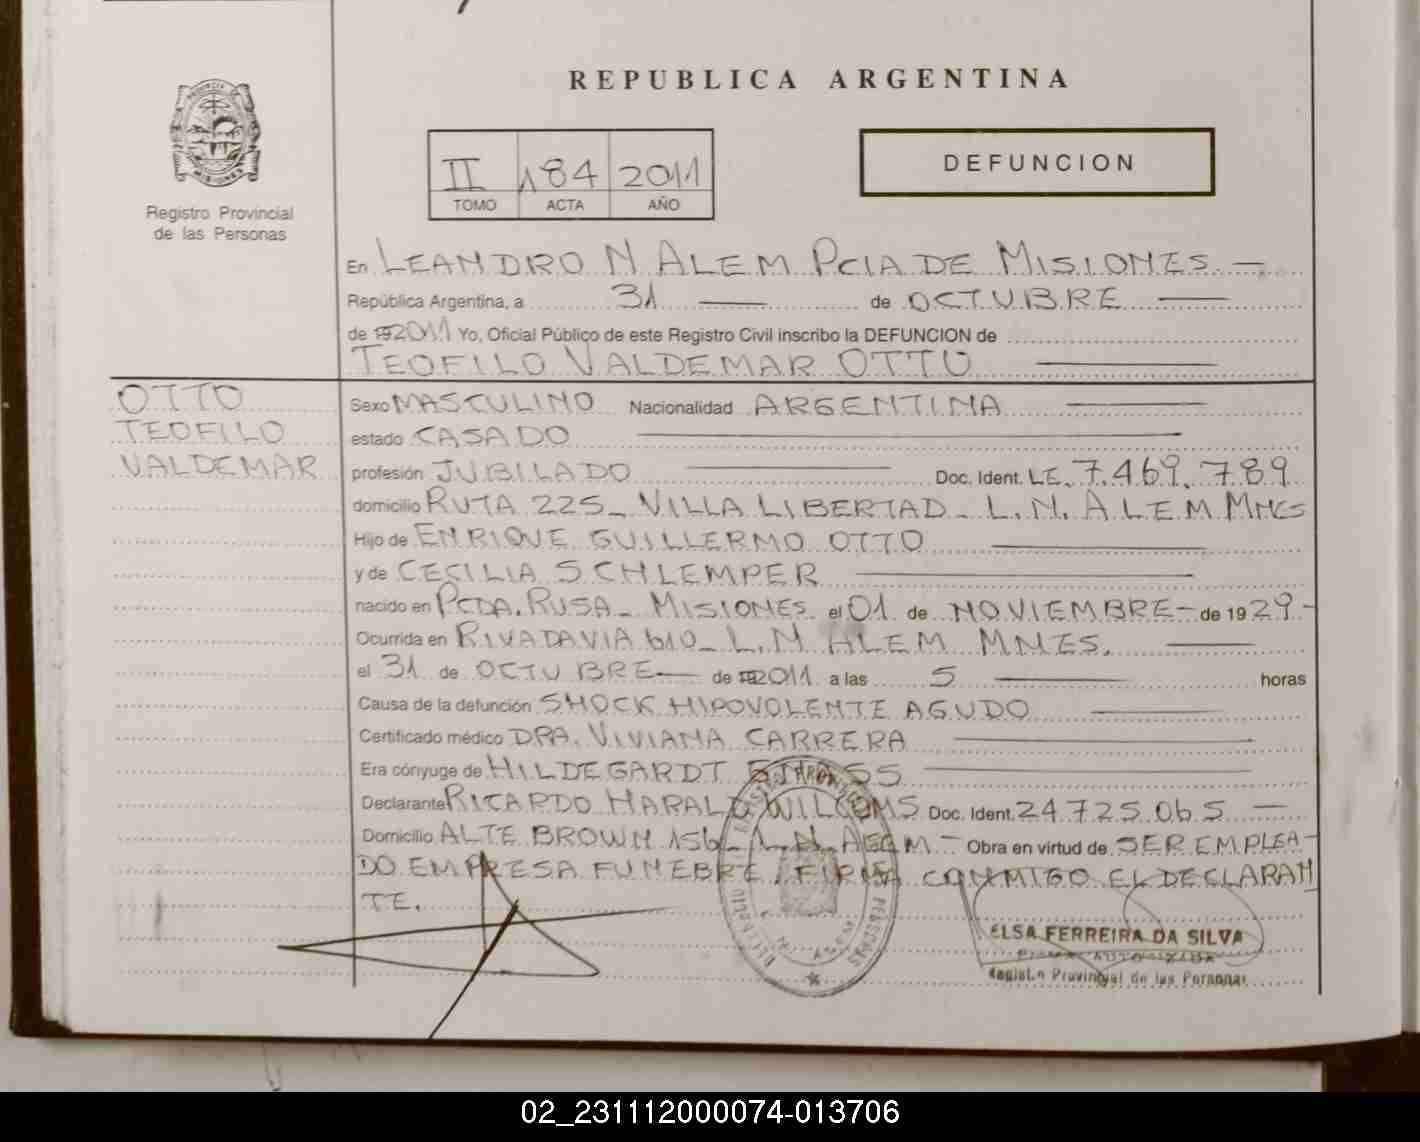 REPUBLICA ARGENTINA
II 184 2011
TOMO ACTA AÑO
DEFUNCION
Registro Provincial
de las Personas
En LEANDRO N ALEM PCIA DE MISIONES
República Argentina, a 31 de OCTUBRE
de 2011 Yo, Oficial Público de este Registro Civil inscribo la DEFUNCION de
TEOFILO VALDEMAR OTTO
OTTO
TEOFILO
VALDEMAR
Sexo MASCULINO Nacionalidad ARGENTINA
estado CASADO
profesión JUBILADO Doc. Ident. LE. 7.469.789
domicilio RUTA 225_ VILLA LIBERTAD_ L.N. ALEM MNES
Hijo de ENRIQUE GUILLERMO OTTO
y de CECILIA SCHLEMPER
nacido en PCDA. RUSA_ MISIONES el 01 de NOVIEMBRE - de 1929 -
Ocurrida en RIVADAVIA 610_ L.N ALEM MNES.
el 31 de OCTUBRE de 2011 a las 5 horas
Causa de la defunción SHOCK HIPOVOLENTE AGUDO
Certificado médico DRA. VIVIANA CARRERA
Era cónyuge de HILDEGARDT
Declarante RICARDO HARALD Doc. Ident. 24.725.065
Domicilio ALTE BROWN 156_ L.N. ALEM - Obra en virtud de SER EMPLEA-
DO EMPRESA FUNEBRE. FIRMA CONMIGO EL DECLARAN
TE.
ELSA FERREIRA DA SILVA
FIRMA AUTORIZADA
Registro Provincial de las Personas
02_231112000074-013706